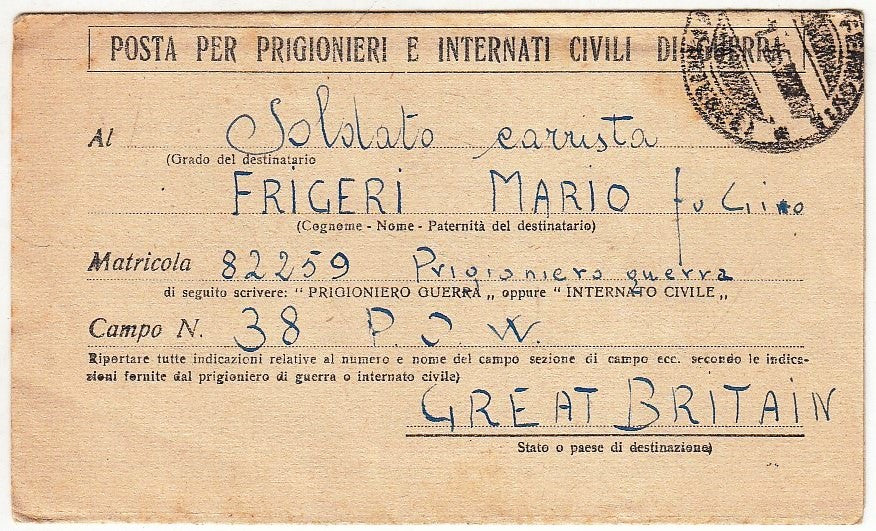 POSTA PER PRIGIONIERI E INTERNATI CIVILI DI GUERRA
Al Soldato carrista
(Grado del destinatario
FRIGERI MARIO fu Gino
(Cognome - Nome - Paternità del destinatario)
Matricola 82259 Prigioniero guerra
di seguito scrivere: " PRIGIONIERO GUERRA „ oppure " INTERNATO CIVILE „
Campo N. 38 P. O W.
Riportare tutte indicazioni relative al numero e nome del campo sezione di campo ecc. secondo le indica-
zioni fornite dal prigioniero di guerra o internato civile)
GREAT BRITAIN
Stato o paese di destinazione)